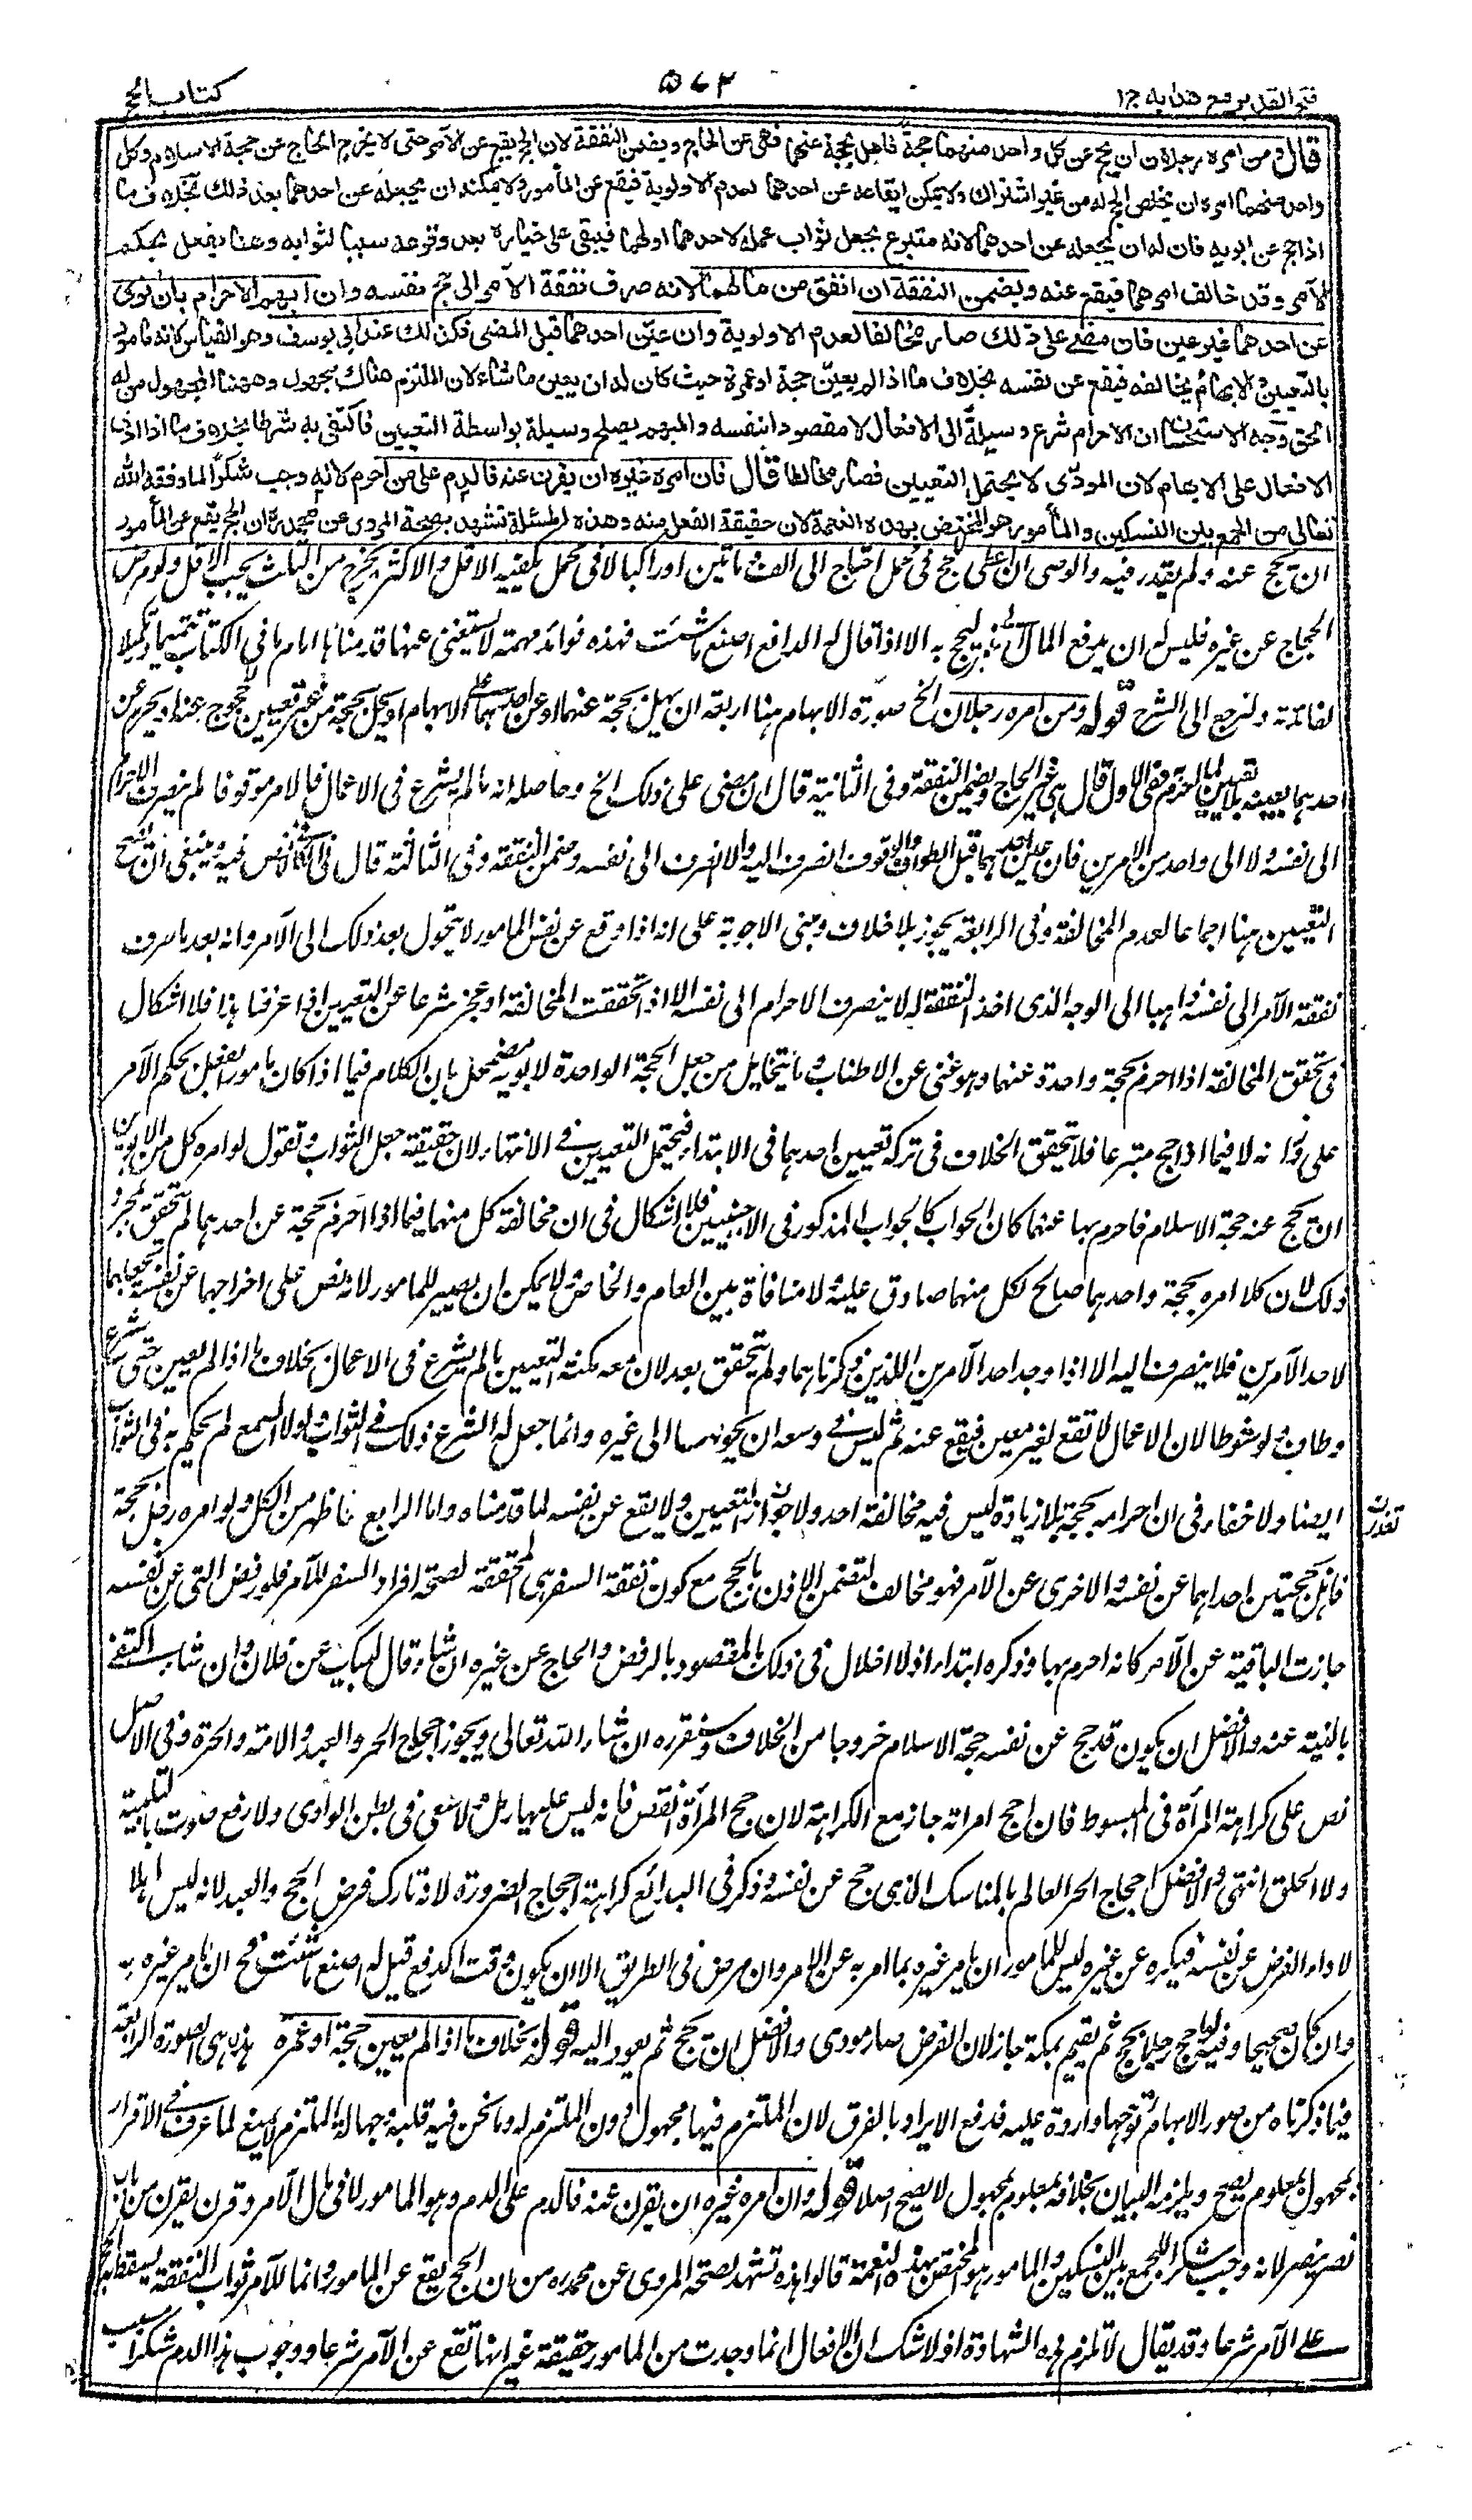 فتح القدير مع هدايه ج ١
٥٧٢
كتاب الحج
قال ومن امره رجلان ان يحج عن كل واحد منهما حجة فاهل بحجة عنهما فهي عن الحاج ويضمن النفقة لان الحج يقع عن الآمر حتى لا يخرج الحاج عن حجة الاسلام وكل
واحد منهما امره ان يخلص الحج له من غير اشتراك ولا يمكن ايقاعه عن احدهما لعدم الاولوية فيقع عن المأمور ولا يمكنه ان يجعله عن احدهما بعد ذلك بخلاف ما
اذا حج عن ابويه فان له ان يجعله عن احدهما لانه متبرع بجعل ثواب عمله لاحدهما او لهما فيبقى على خياره بعد وقوعه سببا لثوابه وهنا يفعل بحكم
الآمر وقد خالف امرهما فيقع عنه ويضمن النفقة ان انفق من مالهما لانه صرف نفقة الآمر الى حج نفسه وان ابهم الاحرام بان نوى
عن احدهما غير عين فان مضى على ذلك صار مخالفا لعدم الاولوية وان عين احدهما قبل المضى فكذلك عند ابي يوسف وهو القياس لانه مامور
بالتعيين والابهام يخالفه فيقع عن نفسه بخلاف ما اذا لم يعين حجة او عمرة حيث كان له ان يعين ما شاء لان الملتزم هناك مجهول وههنا المجهول من له
الحق وجه الاستحسان ان الاحرام شرع وسيلة الى الافعال لا مقصودا بنفسه والمبهم يصلح وسيلة بواسطة التعيين فاكتفى به شرطا بخلاف ما اذا ادى
الافعال على الابهام لان المودى لا يحتمل التعيين فصار مخالفا قال فان امره غيره ان يقرن عنه فالدم على من احرم لانه وجب شكرا لما وفقه الله
تعالى من الجمع بين النسكين والمأمور هو المختص بهذه النعمة لان حقيقة الفعل منه وهذه المسئلة تشهد بصحة المروى عن محمد ره ان الحج يقع عن المأمور
ان يحج عنه ولم يقدر فيه والوصى ان اعطى حج في محمل احتاج الى الف ومأتين او راكبا لا في محمل يكفيه الاقل والاكثر يخرج من الثلث يجب الاقل ولو مرض
الحاج عن غيره فليس له ان يدفع المال الى غيره ليحج به الا اذا قال له الدافع اصنع ما شئت فهذه فوائد مهمة لا يستغنى عنها قدمناها امام ما في الكتاب تتميما وتكميلا
لفائدته ولنرجع الى الشرح قوله ومن امره رجلان الخ صورة الابهام هنا اربعة ان يهل بحجة عنهما او عن احدهما على الابهام او يهل بحجة من غير تعيين لمحجوج عنه او يحرم عن
احدهما بعينه بلا تعيين لما احرم به ففي الاول قال هي عن الحاج ويضمن النفقة وفي الثانية قال ان مضى على ذلك الخ وحاصله انه ما لم يشرع في الاعمال فالامر موقوف لم ينصرف الاحرام
الى نفسه ولا الى واحد من الآمرين فان عين احدهما قبل الطواف والوقوف انصرف اليه والا انصرف الى نفسه وضمن النفقة وفي الثالثة قال في الكافي لا نص فيه وينبغي ان يصح
التعيين هنا اجماعا لعدم المخالفة وفي الرابعة يجوز بلا خلاف ومبنى الاجوبة على انه اذا وقع عن نفس المامور لا يتحول بعد ذلك الى الآمر وانه بعد ما صرف
نفقة الآمر الى نفسه ذاهبا الى الوجه الذي اخذ النفقة له لا ينصرف الاحرام الى نفسه الا اذا تحققت المخالفة او عجز شرعا عن التعيين اذا عرفنا هذا فلا اشكال
في تحقق المخالفة اذا احرم بحجة واحدة عنهما وهو غنى عن الاطناب وما يتخايل من جعل الحجة الواحدة لابويه مضمحل بان الكلام فيما اذا كان مامور الفعل بحكم الآمر
على وزانه لا فيما اذا حج متبرعا فلا يتحقق الخلاف في تركه تعيين احدهما في الابتداء فيحتمل التعيين في الانتهاء لان حقيقته جعل الثواب ونقول لو امره كل من الابوين
ان يحج عنه حجة الاسلام فاحرم بها عنهما كان الجواب كالجواب المذكور في الاجنبيين فلا اشكال في ان مخالفة كل منهما فيما اذا احرم بحجة عن احدهما لم تتحقق بمجرد
ذلك لان كلا امره بحجة واحدهما صالح لكل منهما صادق عليه ولا منافاة بين العام والخاص ولا يمكن ان يصير للمامور لانه نص على اخراجها عن نفسه بجعلها
لاحد الآمرين فلا ينصرف اليه الا اذا وجد احد الآمرين اللذين ذكرناهما ولم يتحقق بعد لان معه مكنة التعيين ما لم يشرع في الاعمال بخلاف ما اذا لم يعين حتى شرع
وطاف ولو شوطا لان الاعمال لا تقع لغير معين فيقع عنه ثم ليس في وسعه ان يحولها الى غيره وانما جعل له الشرع ذلك في الثواب ولولا السمع لم يحكم به في الثواب
ايضا ولا خفاء في ان احرامه بحجة بلا زيادة ليس فيه مخالفة احد ولا تعذر التعيين ولا يقع عن نفسه لما قدمناه واما الرابع فاظهر من الكل ولو امره رجل بحجة
فاهل بحجتين احداهما عن نفسه والاخرى عن الآمر فهو مخالف لتضمن الاذن بالحج مع كون نفقة السفر هي المحققة لصحته افراد السفر للآمر فلو رفض التي عن نفسه
جازت الباقية عن الآمر كانه احرم بها وذكره ابتداء اذ لا اخلال في ذلك بالمقصود بالرفض والحاج عن غيره ان شاء قال لبيك عن فلان وان شاء اكتفى
بالنية عنه والافضل ان يكون قد حج عن نفسه حجة الاسلام خروجا من الخلاف وسنقرره ان شاء الله تعالى ويجوز احجاج الحر والعبد والامة والحرة وفي الاصل
نص على كراهة المرأة في المبسوط فان احج امراة جاز مع الكراهة لان حج المرأة انقص فانه ليس عليها رمل ولا سعى في بطن الوادي ولا رفع صوت بالتلبية
ولا الحلق انتهى والافضل احجاج الحر العالم بالمناسك الذي حج عن نفسه وذكر في البدائع كراهة احجاج الضرورة لانه تارك فرض الحج والعبد لانه ليس اهلا
لاداء الفرض عن نفسه فيكره عن غيره وليس للمامور ان يامر غيره بما امر به عن الآمر وان مرض في الطريق الا ان يكون وقت الدفع قيل له اصنع ما شئت فح ان يامر غيره به
وان كان صحيحا وفيه لو احج رجلا يحج ثم يقيم بمكة جاز لان الفرض صار مودى والافضل ان يحج ثم يعود اليه قوله بخلاف ما اذا لم يعين حجة او عمرة هذه هي الصورة الرابعة
فيما ذكرناه من صور الابهام توجهها واردة عليه فدفع الايراد بالفرق لان الملتزم فيها مجهول دون الملتزم له وما نحن فيه قلبه وجهالة الملتزم لا يمنع لما عرف في الاقرار
بمجهول لمعلوم يصح ويلزمه البيان بخلافه بمعلوم لمجهول لا يصح اصلا قوله وان امره غيره ان يقرن عنه فالدم على الدم وهو المامور لا في مال الآمر وقرن يقرن من باب
نصر ينصر لانه وجب شكرا للجمع بين النسكين والمامور هو المختص بهذه النعمة قالوا هذه تشهد لصحة المروى عن محمد ره من ان الحج يقع عن المامور وانما للآمر ثواب النفقة يسقط به الحج
على الآمر شرعا وقد يقال لا تلزم هذه الشهادة اذ لا شك ان الافعال انما وجدت من المامور حقيقة غير انها تقع عن الآمر شرعا ووجوب هذا الدم شكرا سبب